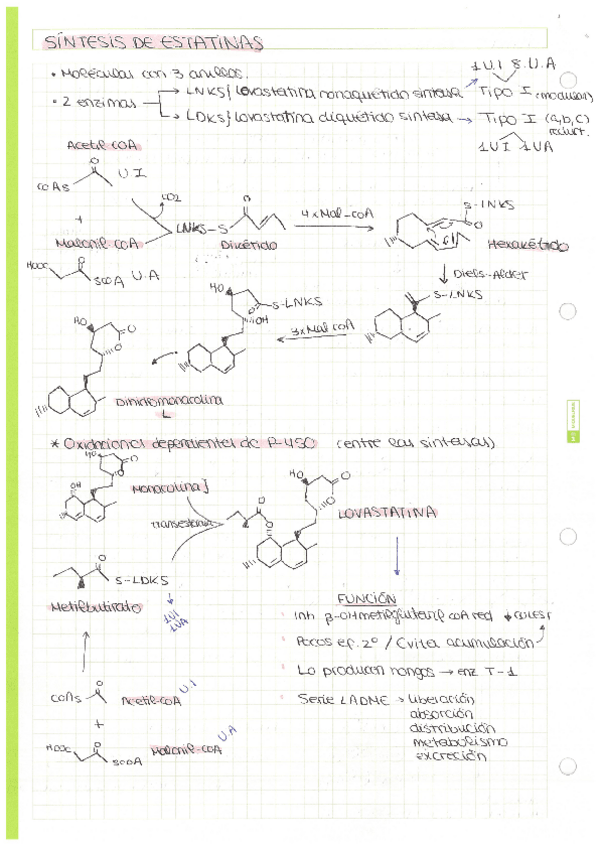 SÍNTESIS DE ESTATINAS
1U.I 8.U.A
• Moléculas con 3 anillos.
• 2 enzimas → LNKS} Lovastatina nonaquétido sintasa → Tipo I (modular)
→ LDKS} Lovastatina diquétido sintasa → Tipo I (a,b,c)
reduct.
1UI 1UA
Acetil CoA
O
U I
CoAs
CO2
+
LNKS-S
O
4xMal-coA
S-LNKS
O
Malonil CoA
Dicétido
Hexakétido
HOOC
O
SCOA U.A
Diels-Alder
HO
O
S-LNKS
OH
S-LNKS
O
3xMalcoA
HO
O
O
Dihidromonacolina
L
* Oxidaciones dependientes de P-450 (entre las sintasas)
HO
O
O
OH
Monacolina J
HO
O
O
O
O
LOVASTATINA
Transesterasa
O
S-LDKS
Metilbutirato
1UI
1UA
FUNCIÓN
Inh β-OHmetilglutaril coA red ↓COLEST
Pocos ef. 2º / Evita acumulación
Lo producen hongos → enz T-1
Serie LADME → liberación
absorción
distribución
metabolismo
excreción
O
COAs
Acetil-COA U.I
+
HOOC
O
SCOA
Malonil-COA U.A